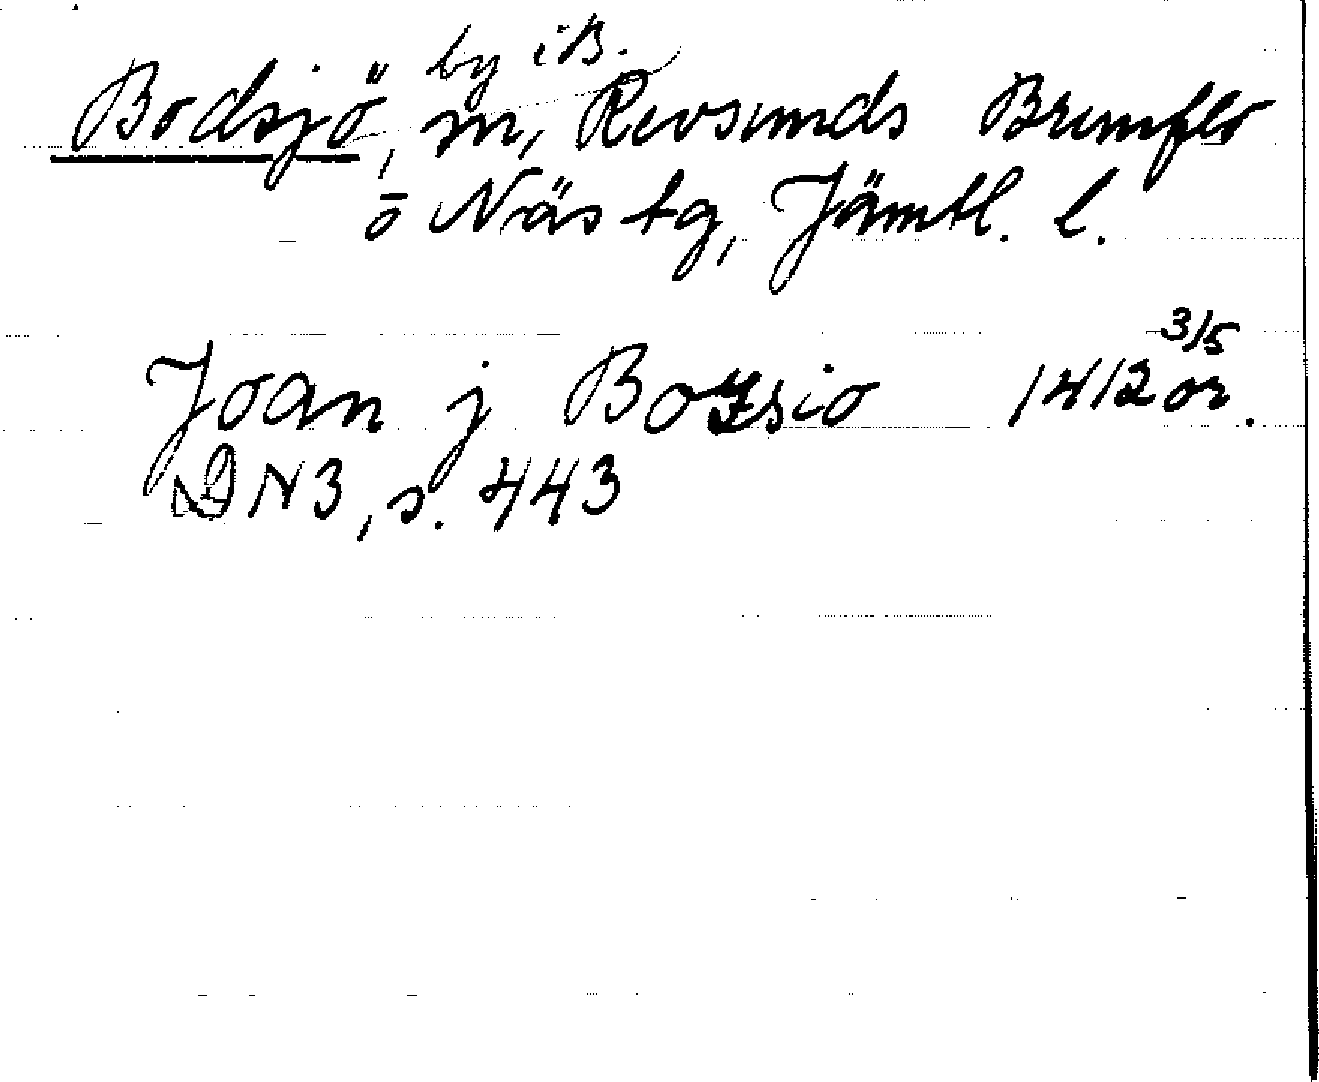 by i B.
Bodsjö, sn, Revsunds Brunflo
o Näs tg, Jämtl. l.
3/5
Joan j Bozsio 1412 or.
DN3, s. 443